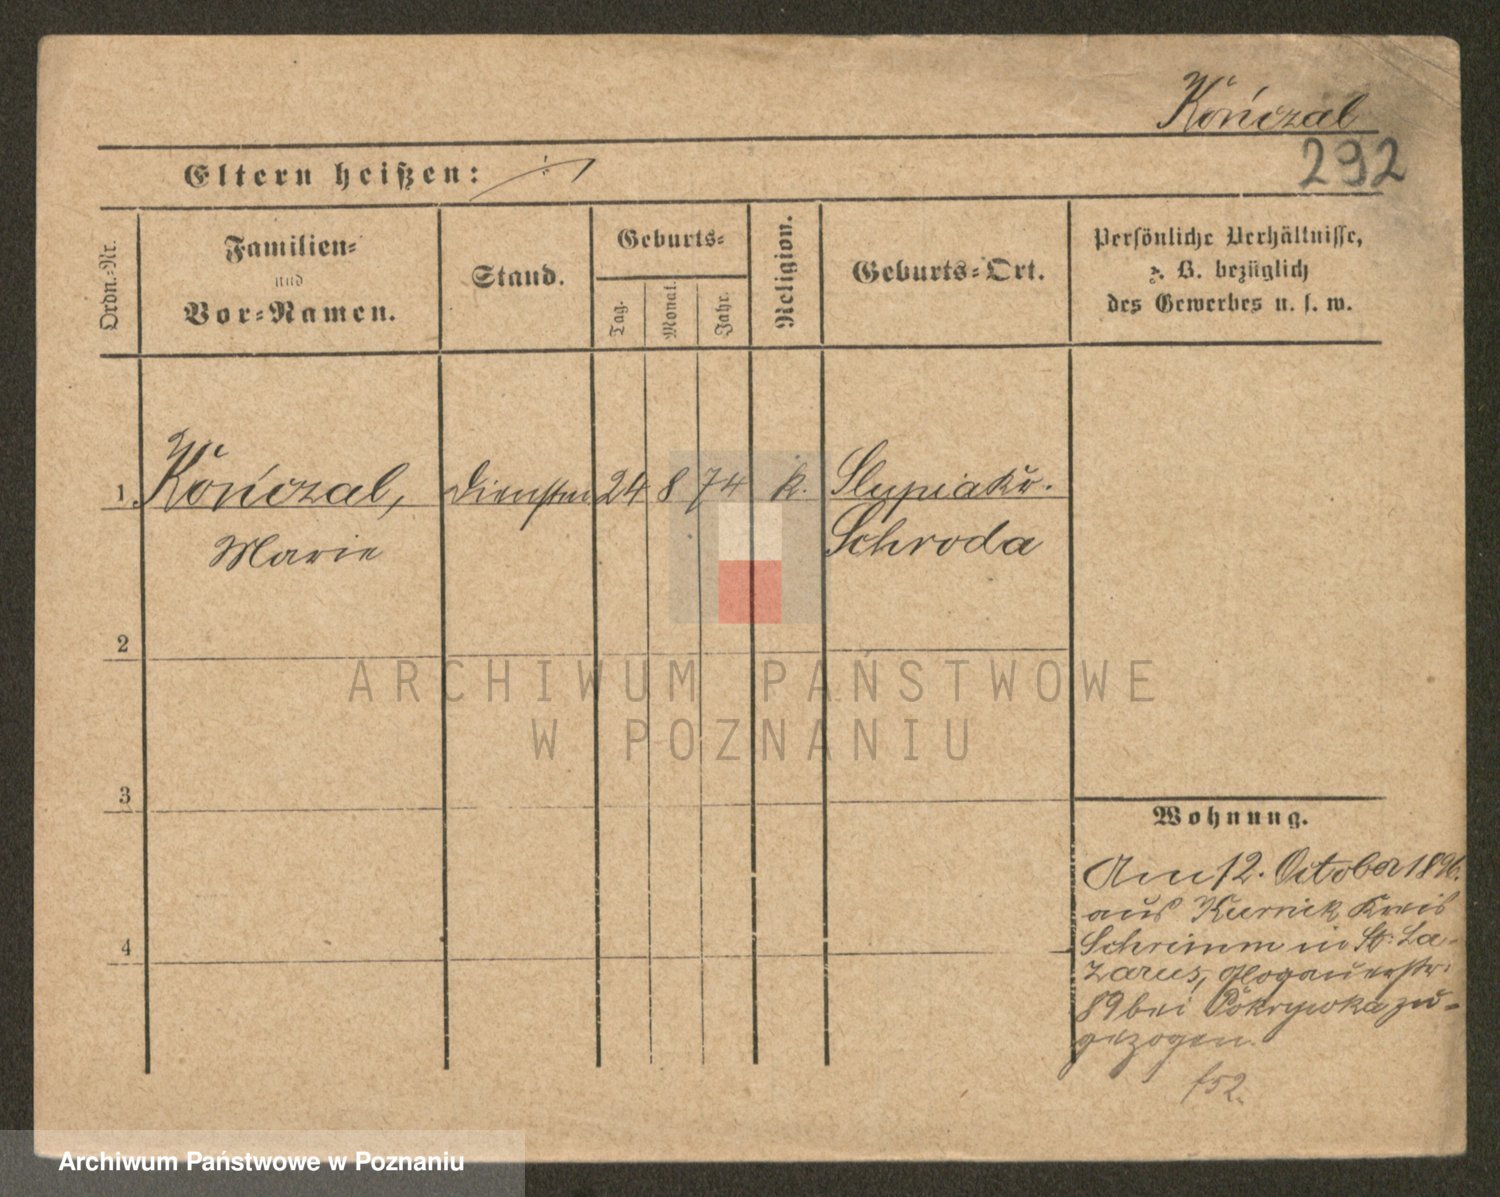 Kończal
292
Eltern heißen:
Ordn.-Nr.
Familien-
und
Vor-Namen.
Stand.
Geburts-
Tag.
Monat.
Jahr.
Religion.
Geburts-Ort.
Persönliche Verhältnisse,
z. B. bezüglich
des Gewerbes u. s. w.
1. Kończal, 24 8 74 k. Slupia Kr.
Marie Schroda
2
3
4
ARCHIWUM PAŃSTWOWE
W POZNANIU
Wohnung.
Am 12. October 1896.
aus Kurnik Kreis
Schrimm in St. La-
zarus, Glogauerstr.
89 bei Pokrywka zu-
gezogen.
Archiwum Państwowe w Poznaniu